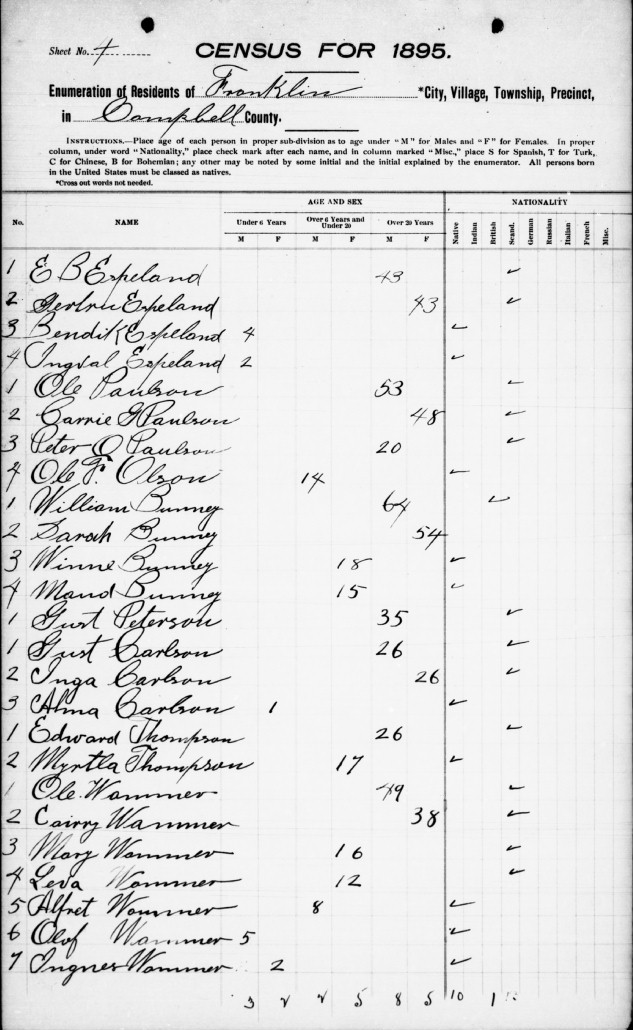 Sheet No. 4
CENSUS FOR 1895.
Enumeration of Residents of Franklin *City, Village, Township, Precinct,
in Campbell County.
INSTRUCTIONS.—Place age of each person in proper sub-division as to age under "M" for Males and "F" for Females. In proper
column, under word "Nationality," place check mark after each name, and in column marked "Misc.," place S for Spanish, T for Turk,
C for Chinese, B for Bohemian; any other may be noted by some initial and the initial explained by the enumerator. All persons born
in the United States must be classed as natives.
*Cross out words not needed.
AGE AND SEX NATIONALITY
No. NAME Under 6 Years Over 6 Years and Under 20 Over 20 Years Native Indian British Scand. German Russian Italian French Misc.
M F M F M F
1 E B Espeland 43 ✓
2 Gertru Espeland 43 ✓
3 Bendik Espeland 4 ✓
4 Ingval Espeland 2 ✓
1 Ole Paulson 53 ✓
2 Carrie G Paulson 48 ✓
3 Peter O Paulson 20 ✓
4 Ole F. Olson 14 ✓
1 William Bunney 64 ✓
2 Sarah Bunney 54
3 Winne Bunney 18 ✓
4 Maud Bunney 15 ✓
1 Gust Peterson 35 ✓
1 Gust Carlson 26 ✓
2 Inga Carlson 26 ✓
3 Alma Carlson 1 ✓
1 Edward Thompson 26 ✓
2 Myrtla Thompson 17 ✓
1 Ole Wammer 49 ✓
2 Cairry Wammer 38 ✓
3 Mary Wammer 16 ✓
4 Leva Wammer 12 ✓
5 Alfret Wammer 8 ✓
6 Olof Wammer 5 ✓
7 Ingner Wammer 2 ✓
3 2 2 5 8 5 10 1